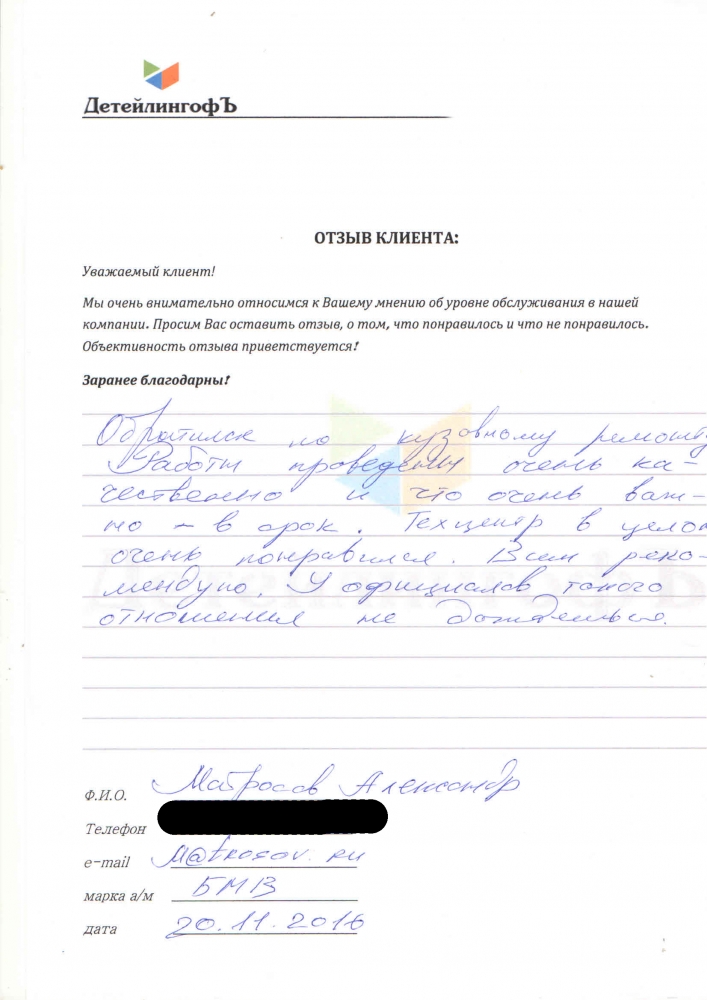 ДетейлингофЪ
ОТЗЫВ КЛИЕНТА:
Уважаемый клиент!
Мы очень внимательно относимся к Вашему мнению об уровне обслуживания в нашей
компании. Просим Вас оставить отзыв, о том, что понравилось и что не понравилось.
Объективность отзыва приветствуется!
Заранее благодарны!
Обратился по кузовному ремонту
Работы проведены очень ка-
чественно и что очень важ-
но - в срок. Техцентр в целом
очень понравился. Всем реко-
мендую. У официалов такого
отношения не дождёшься.
Ф.И.О. Матросов Александр
Телефон
e-mail M@trosov.ru
марка а/м БМВ
дата 20.11.2016